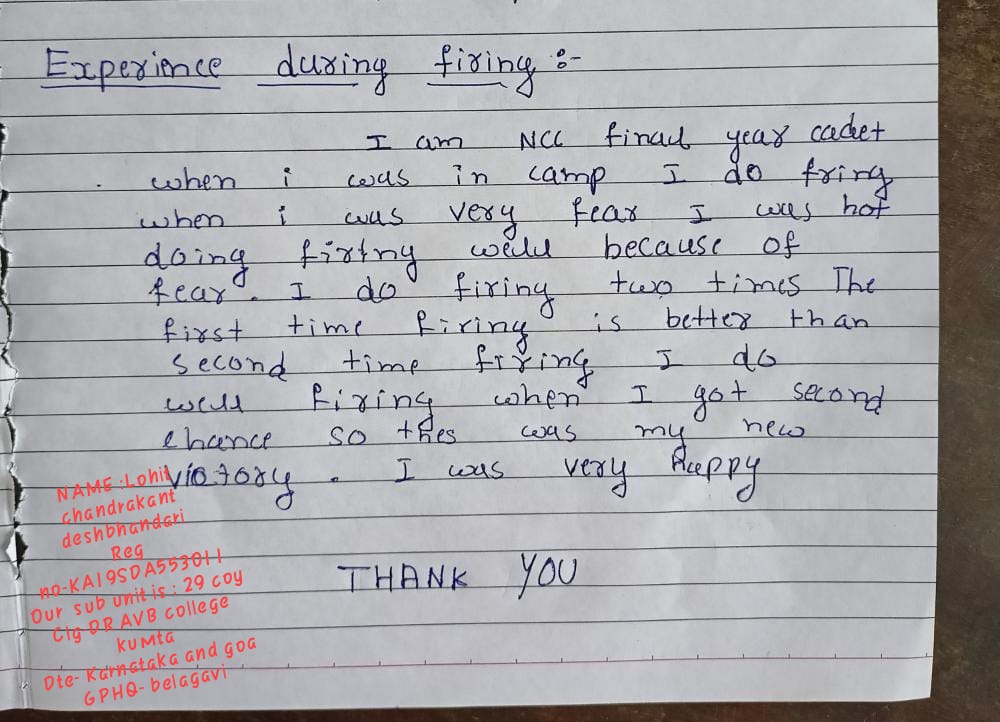 Experience during firing :-
I am NCC final year cadet
when i was in camp I do fring
when i was very fear I was not
doing firing well because of
fear. I do firing two times The
first time firing is better than
second time firing I do
well firing when I got second
chance so thes was my new
victory. I was very Happy
THANK YOU
NAME:Lohit
chandrakant
deshbhandari
Reg
no-KA19SDA553011
Our sub unit is: 29 coy
Clg DR AVB college
kumta
Dte- Karnataka and goa
GPHQ- belagavi